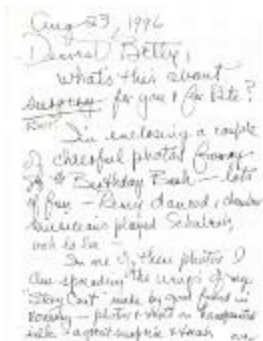 Aug 23, 1996
Dearest Betty,
What's this about
surgery for you & for Pete?
I'm enclosing a couple
of cheerful photos from
my Birthday Bash — lots
of fun — Benny danced, chamber
musicians played Schubert,
ooh la la —
In one of these photos I
am spreading the wings of my
"Story Coat" made by good friend in
— photos & text on
silk — a great surprise &
over